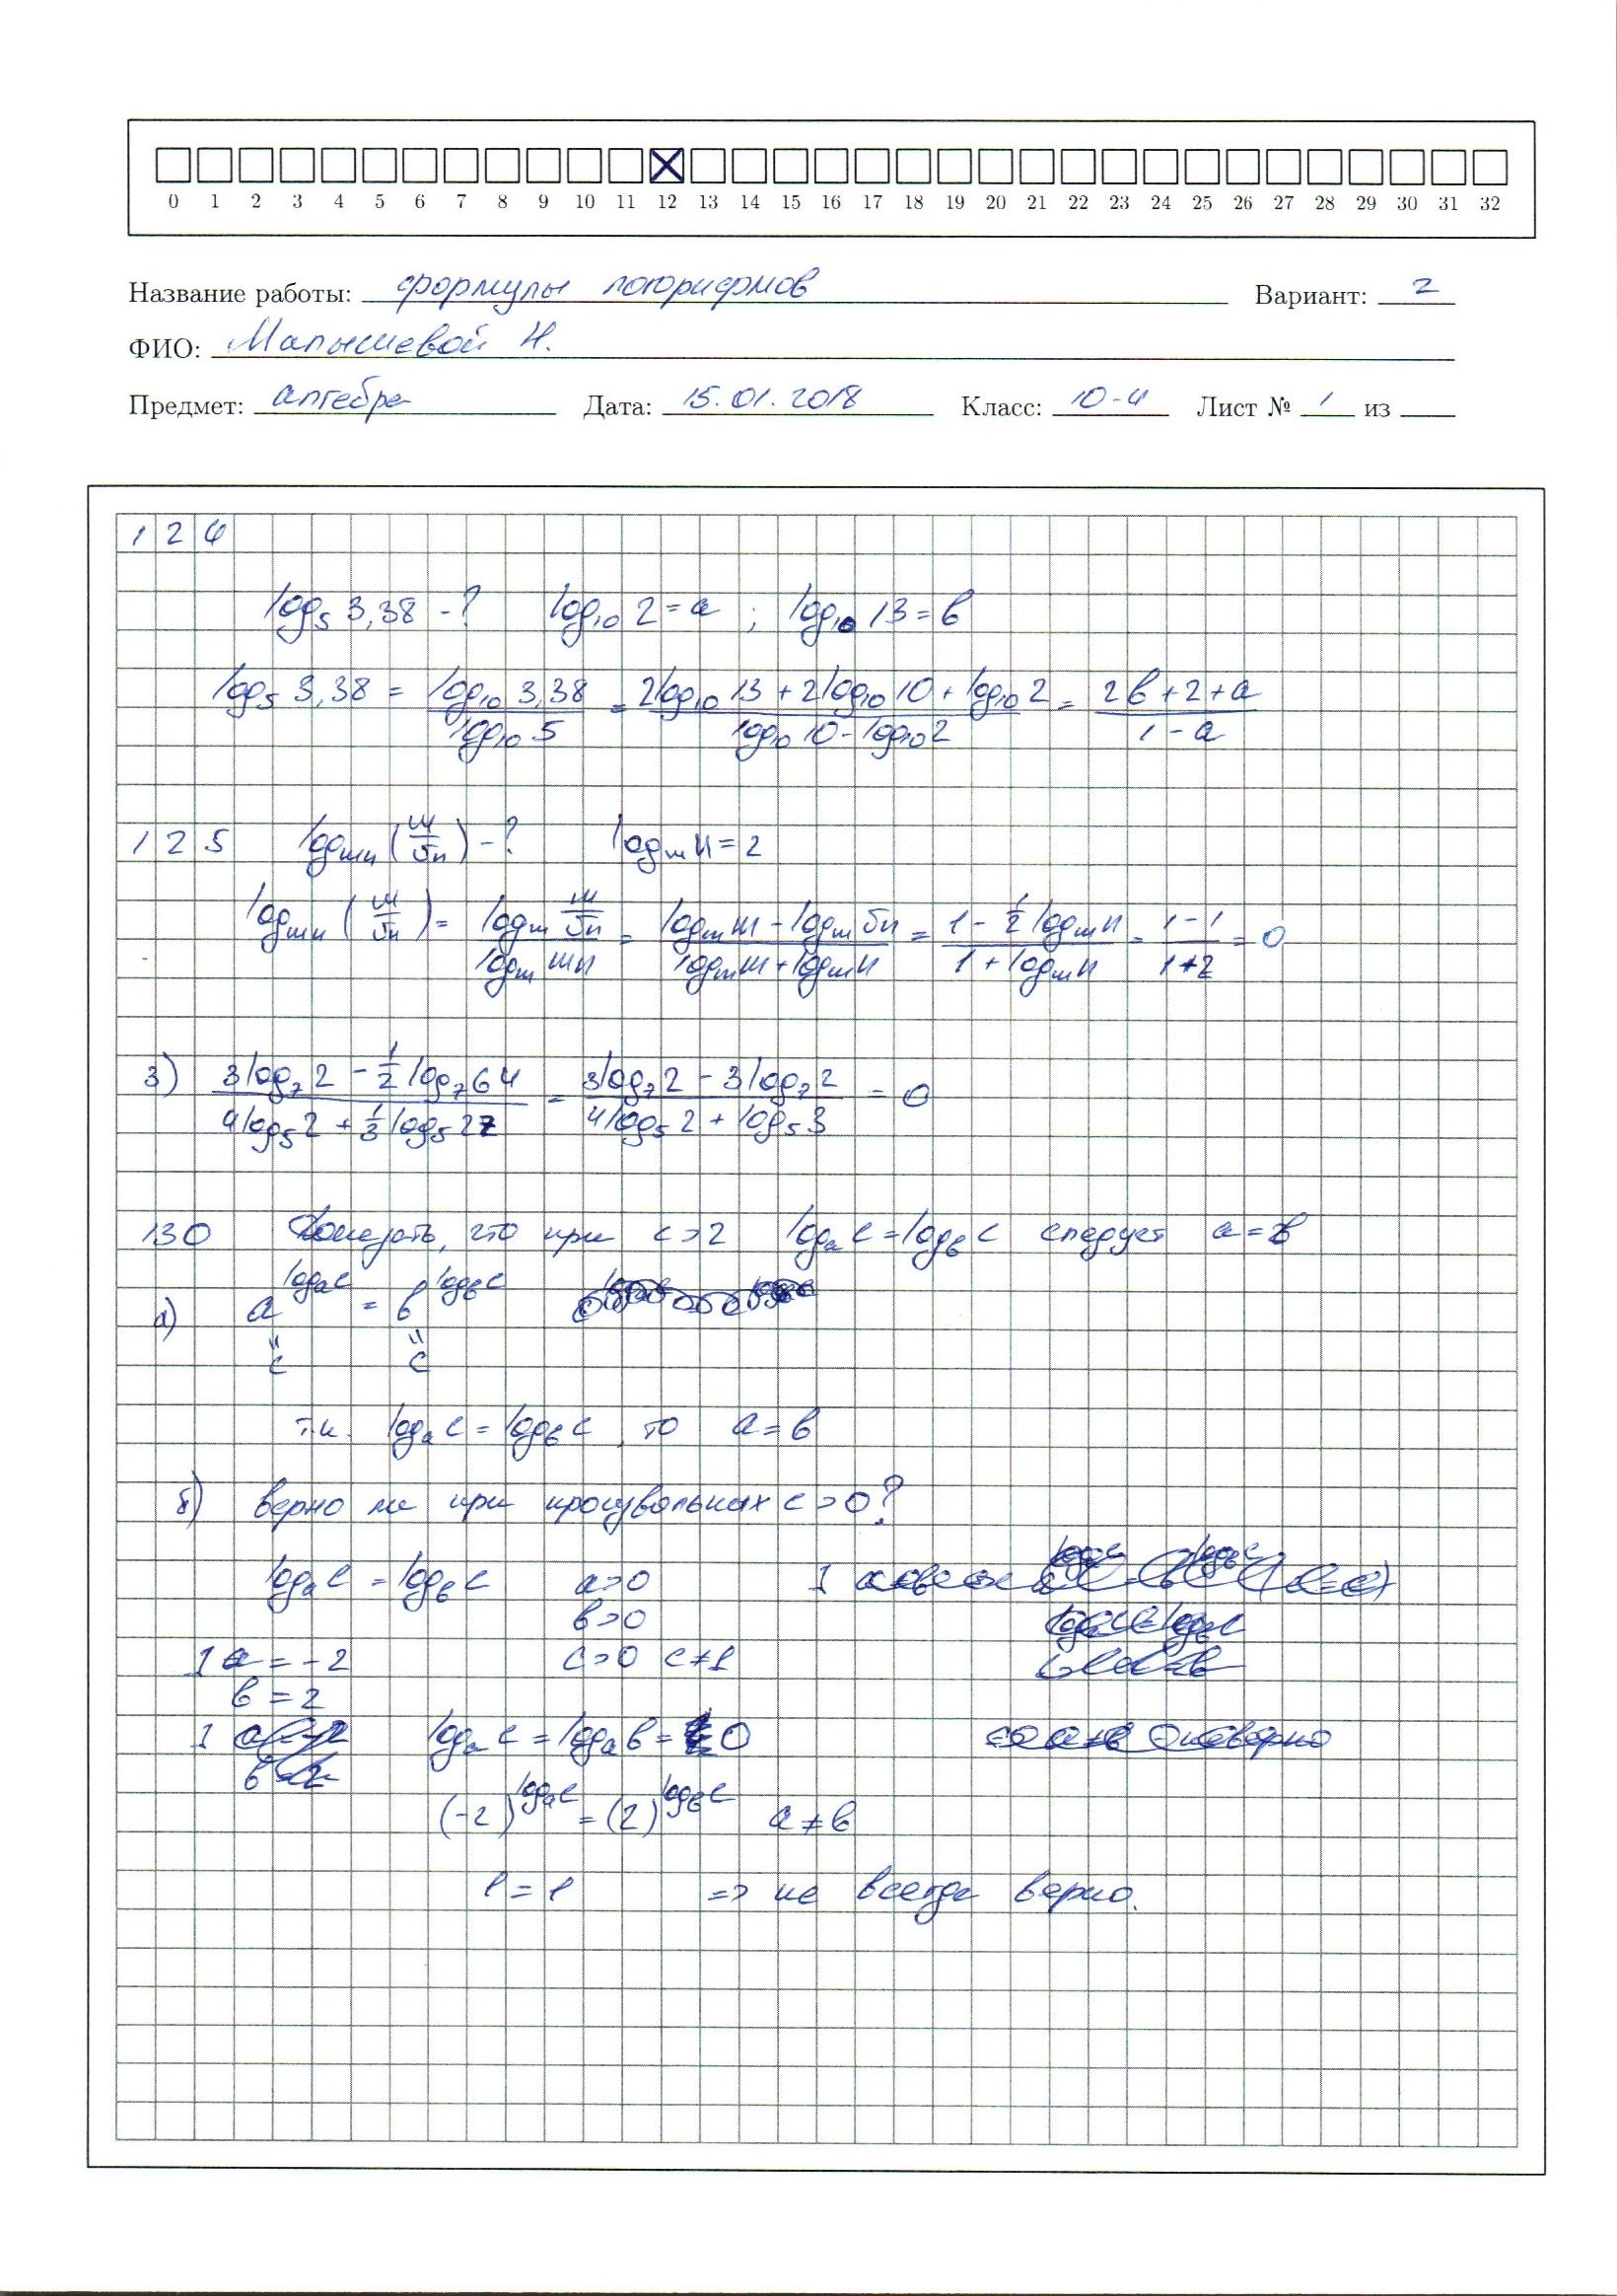 0 1 2 3 4 5 6 7 8 9 10 11 12 13 14 15 16 17 18 19 20 21 22 23 24 25 26 27 28 29 30 31 32
Название работы: формулы логорифмов Вариант: 2
ФИО: Малышевой Н.
Предмет: алгебра Дата: 15.01.2018 Класс: 10-4 Лист № 1 из
124
log₅ 3,38 - ? log₁₀ 2 = a ; log₁₀ 13 = b
log₅ 3,38 = log₁₀ 3,38 / log₁₀ 5 = (2log₁₀ 13 + 2log₁₀ 10 + log₁₀ 2) / (log₁₀ 10 - log₁₀ 2) = (2b + 2 + a) / (1 - a)
125 log_mn (m/√n) - ? log_m n = 2
log_mn (m/√n) = log_m (m/√n) / log_m mn = (log_m m - log_m √n) / (log_m m + log_m n) = (1 - ½ log_m n) / (1 + log_m n) = (1 - 1) / (1 + 2) = 0
3) (3log₇ 2 - ½ log₇ 64) / (4log₅ 2 + ⅓ log₅ 27) = (3log₇ 2 - 3log₇ 2) / (4log₅ 2 + log₅ 3) = 0
130 Доказать, что при c > 2 log_a c = log_b c следует a = b
а) a^(log_a c) = b^(log_b c)
" "
c c
т.к. log_a c = log_b c, то a = b
б) верно ли при произвольных c > 0?
log_a c = log_b c a > 0
b > 0
] a = -2 c > 0 c ≠ 1
b = 2
log_a c = log_a b = 0
(-2)^(log_a c) = (2)^(log_b c) a ≠ b
1 = 1 => не всегда верно.